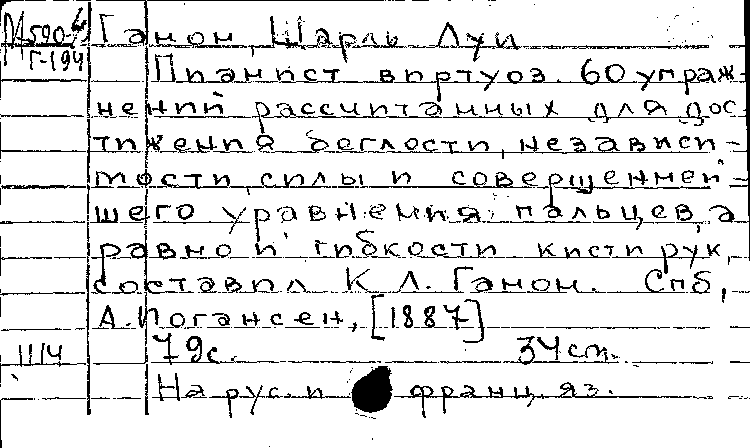 М590-6 Ганон, Шарль Луи
Г-194
Пианист виртуоз. 60 упраж-
нений рассчитанных для дос
тижения беглости, независи-
мости, силы и совершенней-
шего уравнения пальцев, а
равно и гибкости кисти рук,
составил К Л. Ганон. Спб,
А. Иогансен, [1887]
1114 79с. 34 см.
На рус. и франц. яз.